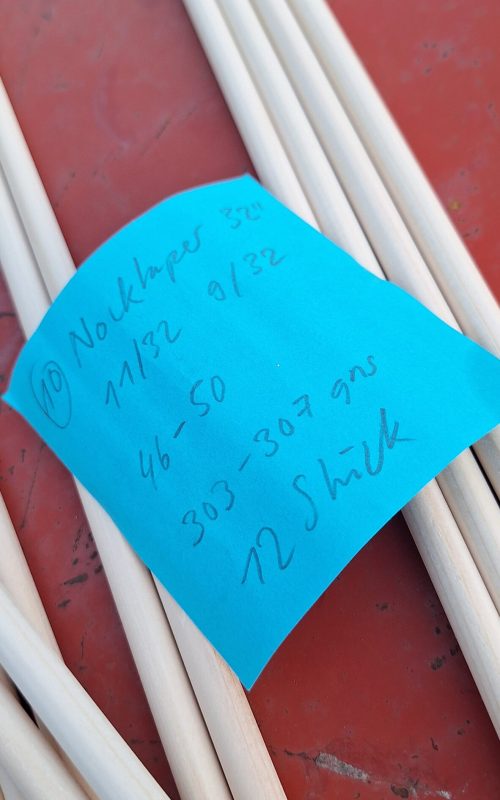 10 Nocktaper 32"
11/32 9/32
46-50
303-307 gns
12 Stück